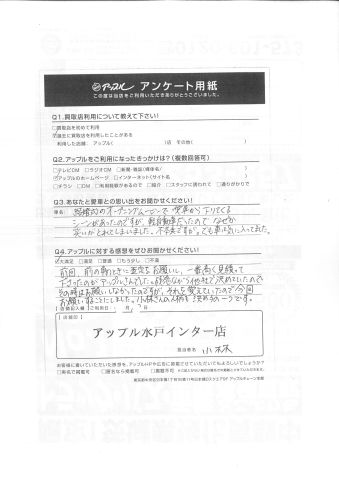 アップル アンケート用紙
この度は当店をご利用いただきありがとうございました。
Q1.買取店利用について教えて下さい!
□買取店を初めて利用
□過去に買取店を利用したことがある
利用した店舗 アップル( )店 その他( )
Q2.アップルをご利用になったきっかけは?(複数回答可)
□テレビCM □ラジオCM □新聞・雑誌(媒体名 )
□アップルのホームページ □インターネット(サイト名 )
□チラシ □DM □利用経験があるので □紹介 □スタッフに誘われて □通りがかりで
Q3.あなたと愛車との思い出をお聞かせください!
車名:
結婚式のオープニングムービーで
シーンがあったのですが、軽自動車だったので なぜか
笑いがとれてしまいました。
Q4.アップルに対する感想をぜひお聞かせください!
大満足 □満足 □普通 □もう少し □不満
前回、前の車のときに査定をお願いし、一番高く見積って
下さったのがアップルさんでした。
その時はお願いしなかったのですが、それを覚えていたので今回
お願いすることにしました。小林さんの人柄も決め手の一つです。
【店舗記入欄】ご利用日:
【店舗印】
アップル水戸インター店
担当者名: 小林
お客様に書いていただいた感想を、アップルHPや広告に掲載させていただいてもよろしいでしょうか?
□実名で掲載可 □匿名なら掲載可 □掲載不可